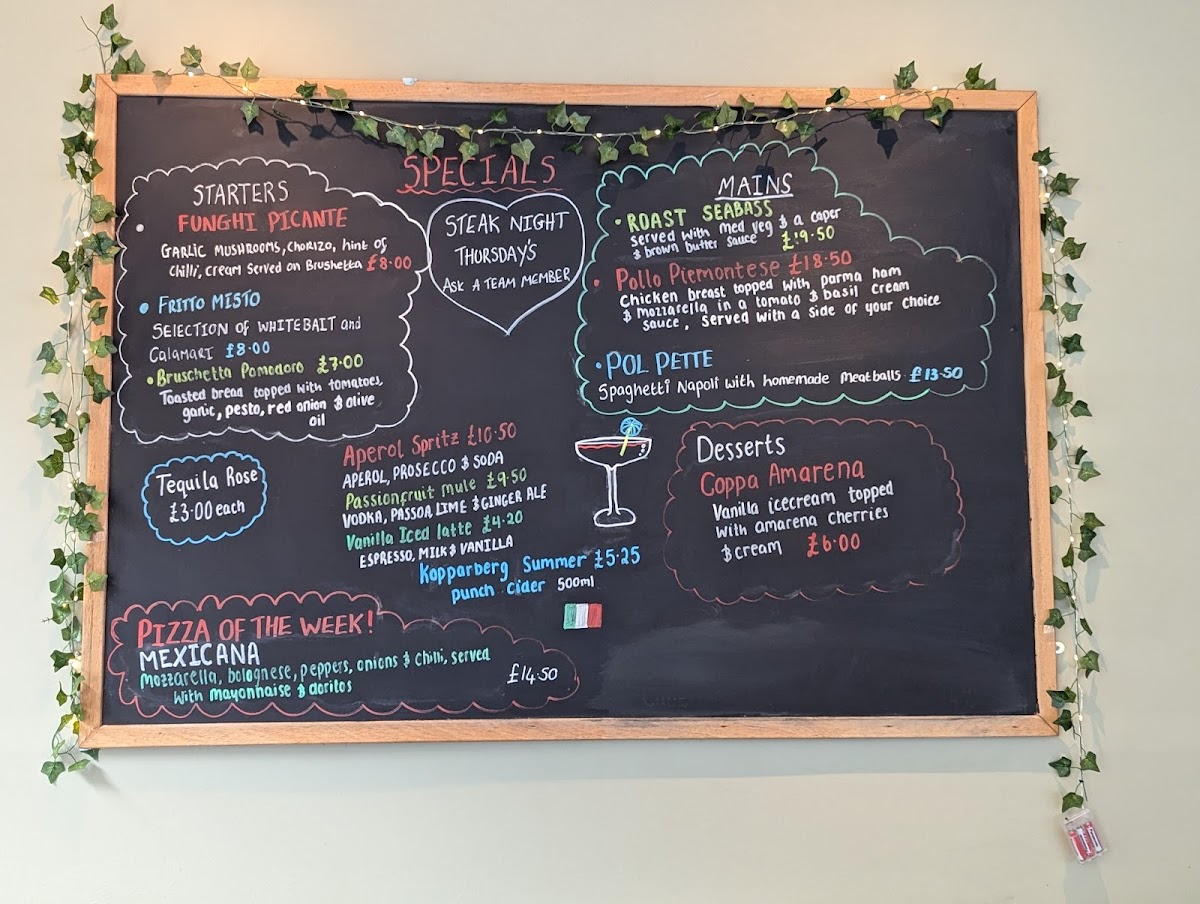 SPECIALS
STARTERS
• FUNGHI PICANTE
GARLIC MUSHROOMS, CHORIZO, hint of
chilli, cream served on Brushetta £8.00
• FRITTO MISTO
SELECTION of WHITEBAIT and
CALAMARI £8.00
• Bruschetta Pomodoro £7.00
Toasted bread topped with tomatoes,
garlic, pesto, red onion & olive
oil
STEAK NIGHT
THORSDAY'S
ASK A TEAM MEMBER
MAINS
• ROAST SEABASS
served with med veg & a caper
& brown butter sauce £19.50
• Pollo Piemontese £18.50
Chicken breast topped with parma ham
& mozzarella in a tomato & basil cream
sauce, served with a side of your choice
• POL PETTE
Spaghetti Napoli with homemade meatballs £13.50
Tequila Rose
£3.00 each
Aperol Spritz £10.50
APEROL, PROSECCO & SODA
Passionfruit mule £9.50
VODKA, PASSOA, LIME & GINGER ALE
Vanilla Iced latte £4.20
ESPRESSO, MILK & VANILLA
Kopparberg Summer £5.25
punch cider 500ml
Desserts
Coppa Amarena
Vanilla icecream topped
with amarena cherries
& cream £6.00
PIZZA OF THE WEEK!
MEXICANA
Mozzarella, bolognese, peppers, onions & chilli, served
with mayonnaise & doritos
£14.50